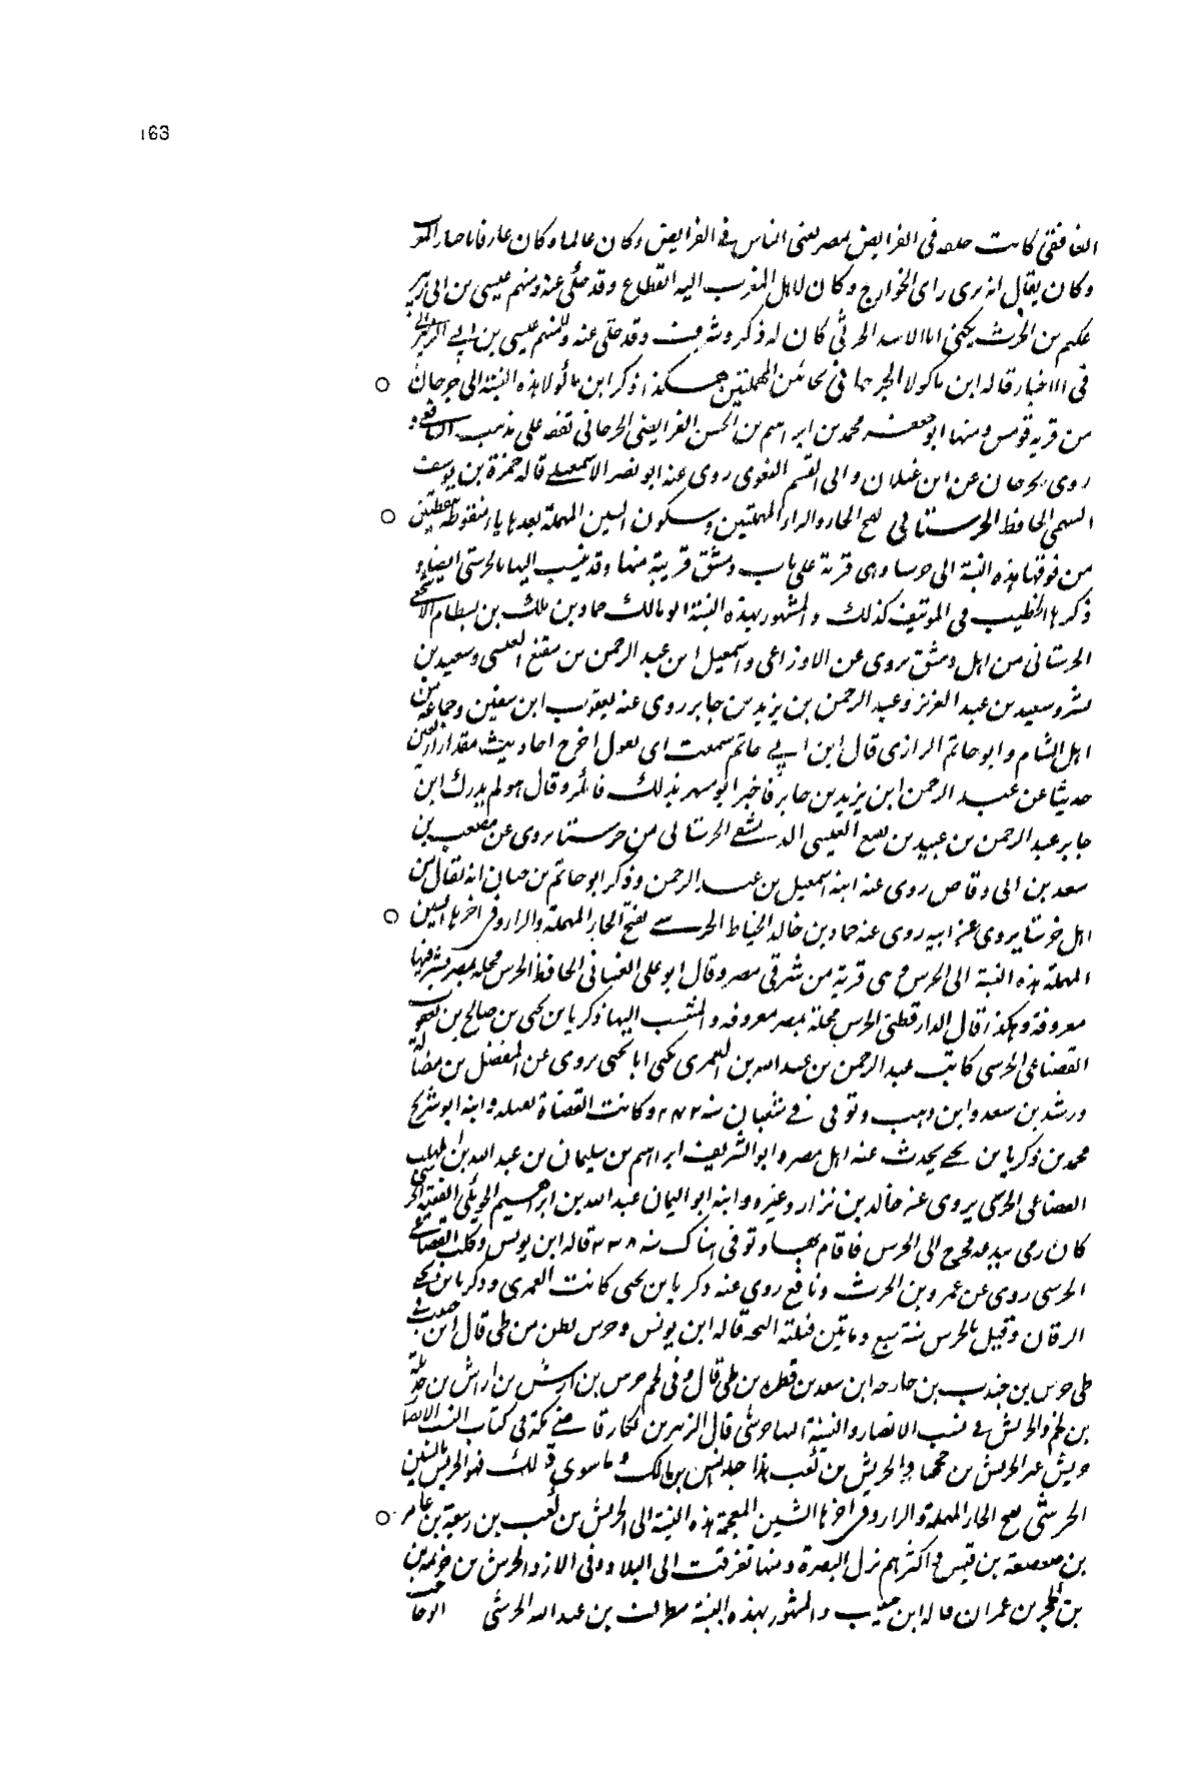 163
الغافقى كانت حلقه فى الفرايض بمصر يفتى الناس فى الفرايض وكان عالما وكان عارفا باخبار
وكان يقال انه يرى راى الخوارج وكان لاهل المغرب اليه انقطاع وقد حكى عنه ومنهم عيسى بن ابى
عكيم بن الحرث يكنى ابا الاسد الحرثى كان له ذكر وشرف وقد حكى عنه عيسى بن ابى
فى الاخبار قاله ابن ماكولا فى بحائين المهملتين هكذا ذكر ابن ماكولا هذه النسبة الى جرجان ○
من قريه قومس ومنها ابو جعفر محمد بن ابراهيم بن الحسن الفرايضى الجرجانى تفقه على مذهب الشافعى و
روى بجرجان عن ابن غيلان وابى القسم البغوى روى عنه ابو نصر الاسمعيلى قاله حمزة بن يوسف
السهمى الحافظ الحرستانى بفتح الحاء والراء المهملتين وسكون السين المهملة بعدها ياء منقوطة بنقطتين ○
من فوقها هذه النسبة الى حرستا وهى قرية على باب دمشق قريبة منها وقد ينسب اليها بالحرستى ايضا و
ذكرها الخطيب فى الموتنف كذلك والمشهور بهذه النسبة ابو مالك حماد بن ملك بن بسطام الاشجعى
الحرستانى من اهل دمشق يروى عن الاوزاعى واسمعيل ابن عبد الرحمن بن العبسى وسعيد بن
بشر وسعيد بن عبد العزيز وعبد الرحمن بن يزيد بن جابر روى عنه يعقوب ابن سفين وجماعة من
اهل الشام وابو حاتم الرازى قال ابن ابى حاتم سمعت ابى يقول اخرج احاديث مقدار اربعين
حديثا عن عبد الرحمن ابن يزيد بن جابر فاخبر ابو مسهر بذلك فانكره وقال هو لم يدرك ابن
جابر عبد الرحمن بن عبيد بن العبسى الدمشقى الحرستانى من حرستا يروى عن مصعب بن
سعد بن ابى وقاص روى عنه ابنه اسمعيل بن عبد الرحمن وذكر ابو حاتم بن حبان انه يقال من
اهل حرستا يروى عن ابيه روى عنه حماد بن خالد الخياط الحرسى بفتح الحاء المهملة والراء وفى اخرها السين ○
المهملة هذه النسبة الى الحرس وهى قرية من شرقى مصر وقال ابو على الغسانى الحافظ الحرس محلة بمصر بشرقيها
معروفة وهكذا قال الدارقطنى الحرس محلة بمصر معروفة والمنتسب اليها زكريا بن يحيى بن صالح بن يعقوب
القضاعى الحرسى كاتب عبد الرحمن بن عبد الله بن العمرى يكنى ابا يحيى يروى عن المفضل بن فضالة
ورشد بن سعد وابن وهب وتوفى فى شعبان سنه ٢٤٢ وكانت القضاة تقبله وابنه ابو شريح
محمد بن زكريا بن يحيى يحدث عنه اهل مصر وابو الشريف ابراهيم بن سليمان بن عبد الله بن المهلب
القضاعى الحرسى يروى عنه خالد بن نزار وغيره وابنه ابو اليمان عبد الله بن ابراهيم الفقيه
كان رمى بيده فخرج الى الحرس فاقام بها وتوفى هناك سنه قاله ابن يونس القضاعى
الحرسى روى عن عمرو بن الحرث ونافع روى عنه زكريا بن يحيى كاتب العمرى وزكريا بن يحيى
الرقان وقيل بالحرس سنة سبع ومايتين قتلته قاله ابن يونس وحرس بطن من طى قال ابن حبيب فى
طى حرس بن جندب بن خارجه ابن سعد بن فطره بن طى قال وفى لخم حرس بن اريش بن اراش بن جزيلة
بن لخم والحريش فى نسب الانصار والنسبة اليها حرشى قال الزبير بن بكار قاضى مكة فى كتاب النسب
حريش غير الحريش بن والحريش بن كعب هذا جد انس بن مالك وما سوى ذلك فهو الحريس بالسين
الحرشى بفتح الحاء المهملة والراء وفى اخرها الشين المعجمة هذه النسبة الى الحريش بن كعب بن ربيعة بن عامر ○
بن صعصعة بن قيس واكثرهم نزل البصرة ومنها تفرقت الى البلاد وفى الازد الحرش بن خزيمه بن
بن الحجر بن عمران قاله ابن حبيب والمشهور بهذه النسبة مطرف بن عبد الله الحرشى